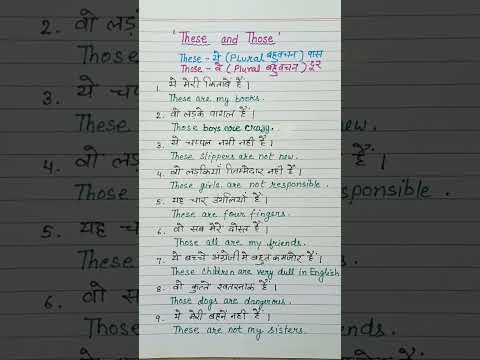 'These and Those'
These - ये (Plural बहुवचन) पास
Those - वे (Plural बहुवचन) दूर
1. ये मेरी किताबें हैं ।
These are my books.
2. वो लड़के पागल हैं ।
Those boys are crazy.
3. ये चप्पल नयी नहीं हैं ।
These slippers are not new.
4. वो लड़कियाँ जिम्मेदार नहीं हैं ।
These girls are not responsible.
5. यह चार उंगलियाँ हैं ।
These are four fingers.
6. वो सब मेरे दोस्त हैं ।
Those all are my friends.
7. ये बच्चे अंग्रेजी मे बहुत कमजोर हैं ।
These children are very dull in English
8. वो कुत्ते खतरनाक हैं ।
Those dogs are dangerous.
9. ये मेरी बहनें नहीं हैं ।
These are not my sisters.